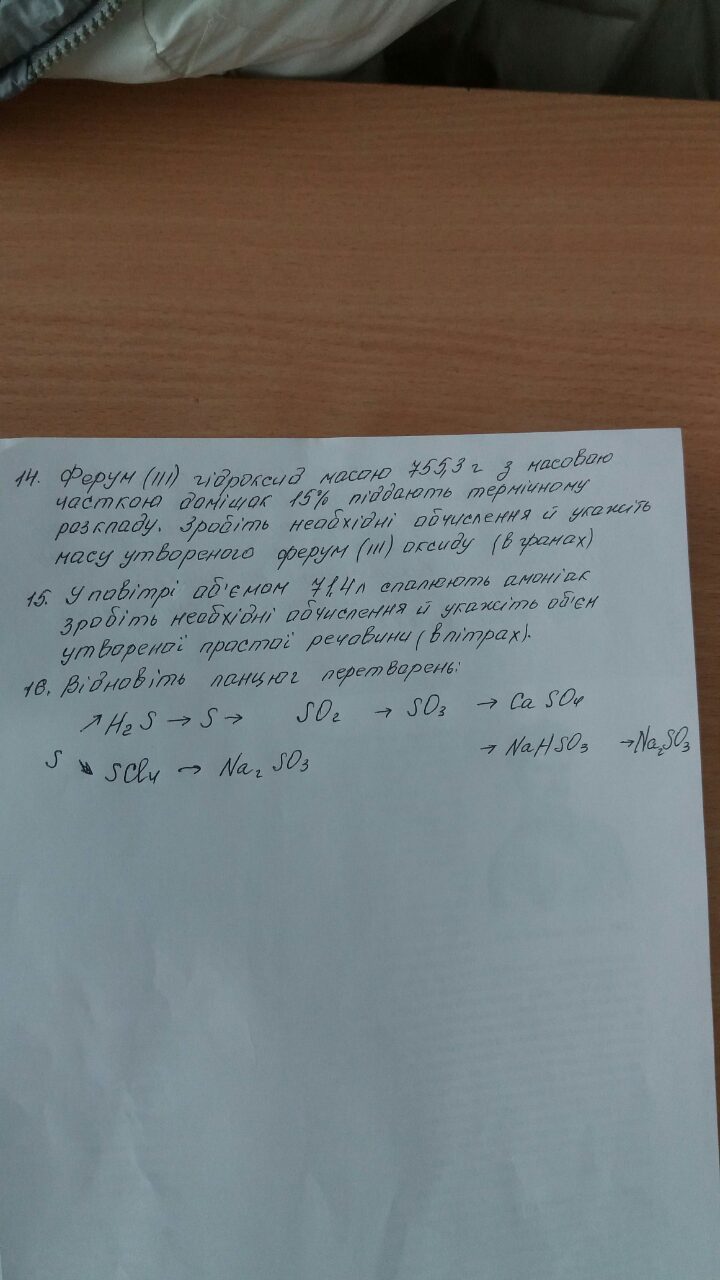 14. Ферум (III) гідроксид масою 755,3 г з масовою
часткою домішок 15% піддають термічному
розкладу. Зробіть необхідні обчислення й укажіть
масу утвореного ферум (III) оксиду (в грамах)
15. У повітрі об'ємом 71,4 л спалюють амоніак
зробіть необхідні обчислення й укажіть об'єм
утвореної простої речовини (в літрах).
16. Відновіть ланцюг перетворень:
↗ H₂S → S → SO₂ → SO₃ → CaSO₄
S ↘ SCl₄ → Na₂SO₃ → NaHSO₃ → Na₂SO₃